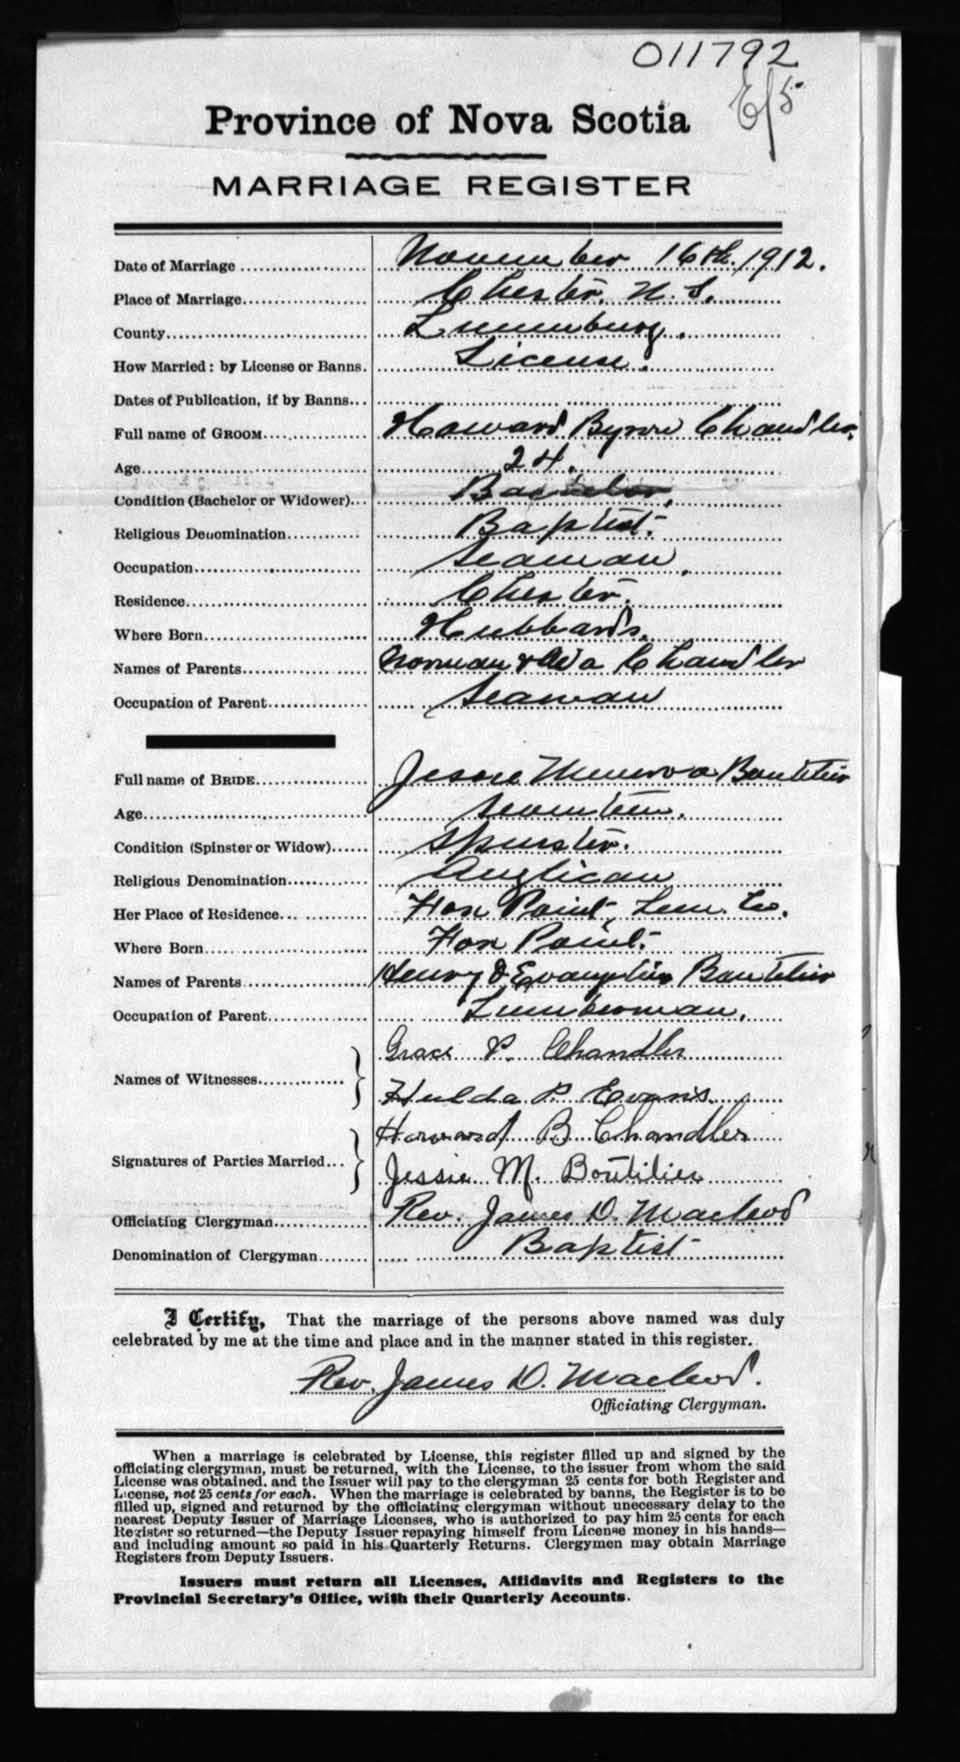 011792
E/5
Province of Nova Scotia
MARRIAGE REGISTER
Date of Marriage November 16th. 1912.
Place of Marriage Chester. N. S.
County Lunenburg.
How Married: by License or Banns. License.
Dates of Publication, if by Banns
Full name of GROOM Howard Byron Chandler.
Age 24.
Condition (Bachelor or Widower) Bachelor.
Religious Denomination Baptist.
Occupation Seaman.
Residence Chester.
Where Born Hubbards.
Names of Parents Norman & Ada Chandler
Occupation of Parent Seaman
Full name of BRIDE Jessie Minerva Boutilier
Age Seventeen.
Condition (Spinster or Widow) Spinster.
Religious Denomination Anglican
Her Place of Residence Fox Point, Lun. Co.
Where Born Fox Point.
Names of Parents Henry & Evangeline Boutilier
Occupation of Parent Lumberman.
Names of Witnesses Grace P. Chandler
Hulda P. Evans
Signatures of Parties Married Howard B Chandler
Jessie M. Boutilier
Officiating Clergyman Rev. James D. Macleod
Denomination of Clergyman Baptist
I Certify, That the marriage of the persons above named was duly
celebrated by me at the time and place and in the manner stated in this register.
Rev. James D. Macleod.
Officiating Clergyman.
When a marriage is celebrated by License, this register filled up and signed by the
officiating clergyman, must be returned, with the License, to the issuer from whom the said
License was obtained. and the Issuer will pay to the clergyman 25 cents for both Register and
License, not 25 cents for each. When the marriage is celebrated by banns, the Register is to be
filled up, signed and returned by the officiating clergyman without unnecessary delay to the
nearest Deputy Issuer of Marriage Licenses, who is authorized to pay him 25 cents for each
Register so returned—the Deputy Issuer repaying himself from License money in his hands—
and including amount so paid in his Quarterly Returns. Clergymen may obtain Marriage
Registers from Deputy Issuers.
Issuers must return all Licenses, Affidavits and Registers to the
Provincial Secretary's Office, with their Quarterly Accounts.